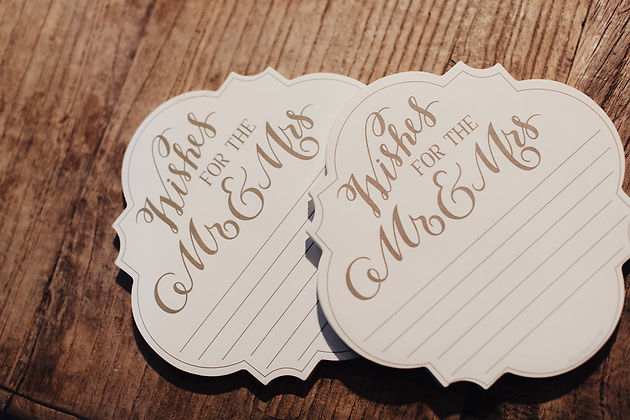 Wishes
FOR THE
Mr & Mrs
Wishes
FOR THE
Mr & Mrs